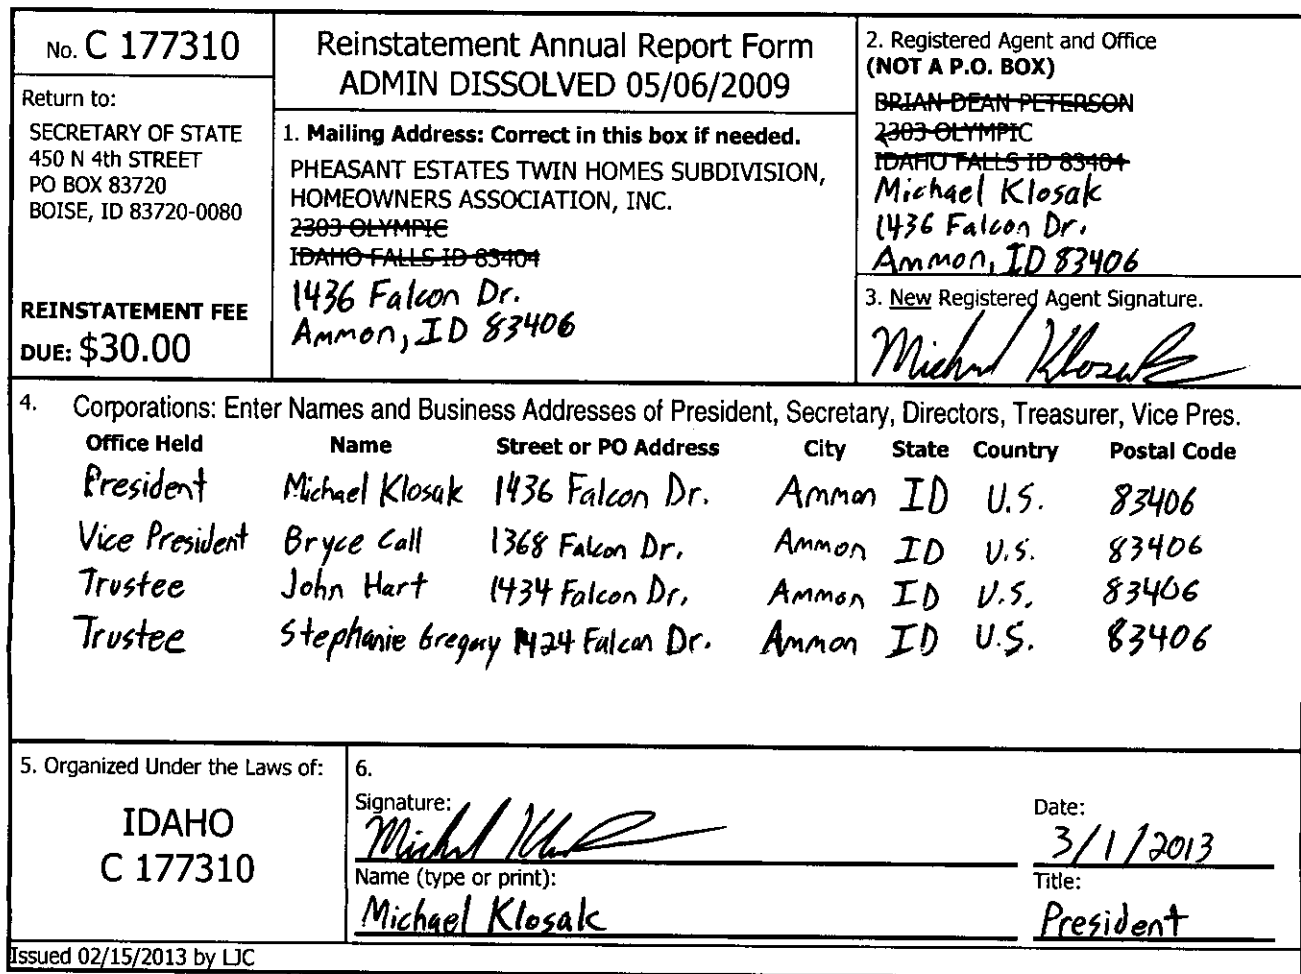 No. C 177310
Return to:
SECRETARY OF STATE
450 N 4th STREET
PO BOX 83720
BOISE, ID 83720-0080
REINSTATEMENT FEE
DUE: $30.00
Reinstatement Annual Report Form
ADMIN DISSOLVED 05/06/2009
1. Mailing Address: Correct in this box if needed.
PHEASANT ESTATES TWIN HOMES SUBDIVISION,
HOMEOWNERS ASSOCIATION, INC.
2303 OLYMPIC
IDAHO FALLS ID 83404
1436 Falcon Dr.
Ammon, ID 83406
2. Registered Agent and Office
(NOT A P.O. BOX)
BRIAN DEAN PETERSON
2303 OLYMPIC
IDAHO FALLS ID 83404
Michael Klosak
1436 Falcon Dr.
Ammon, ID 83406
3. New Registered Agent Signature.
Michael Klosak
4. Corporations: Enter Names and Business Addresses of President, Secretary, Directors, Treasurer, Vice Pres.
Office Held Name Street or PO Address City State Country Postal Code
President Michael Klosak 1436 Falcon Dr. Ammon ID U.S. 83406
Vice President Bryce Call 1368 Falcon Dr. Ammon ID U.S. 83406
Trustee John Hart 1434 Falcon Dr. Ammon ID U.S. 83406
Trustee Stephanie Gregory 1424 Falcon Dr. Ammon ID U.S. 83406
5. Organized Under the Laws of:
IDAHO
C 177310
6.
Signature:
Michael Klosak
Date:
3/1/2013
Name (type or print):
Michael Klosak
Title:
President
Issued 02/15/2013 by LJC